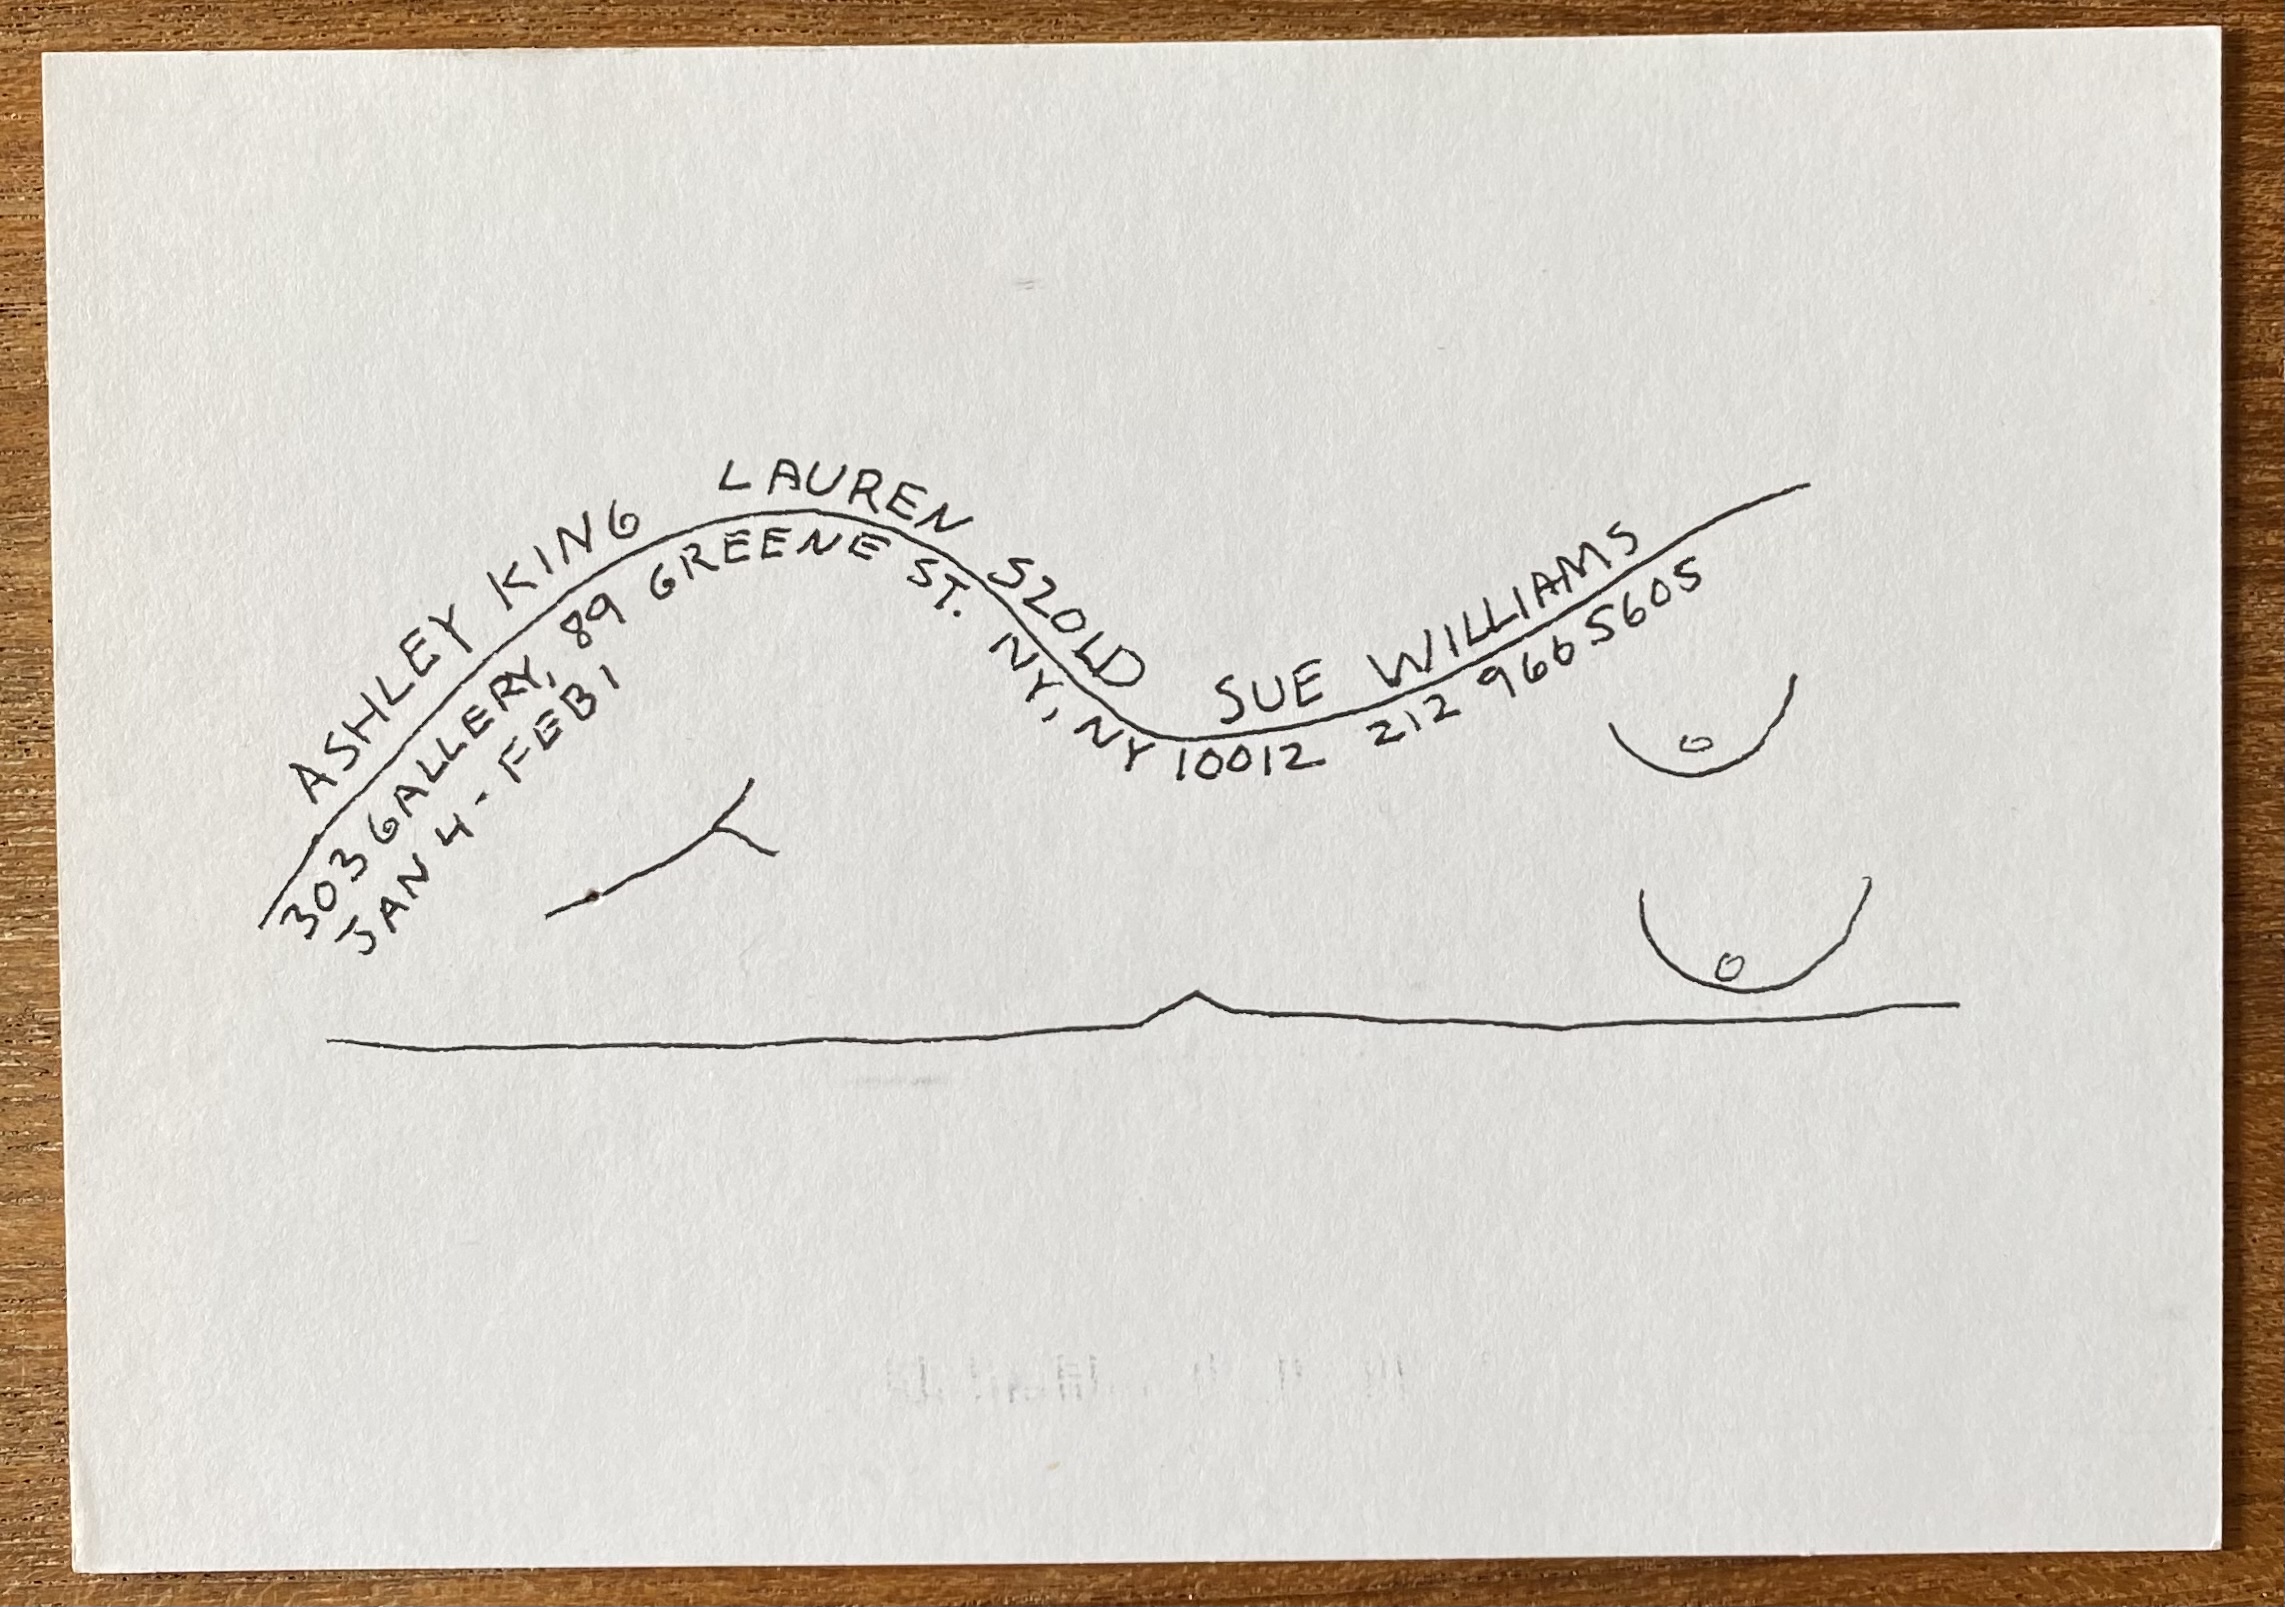 ASHLEY KING LAUREN SZOLD SUE WILLIAMS
303 GALLERY, 89 GREENE ST. NY, NY 10012 212 966 5605
JAN 4 - FEB 1